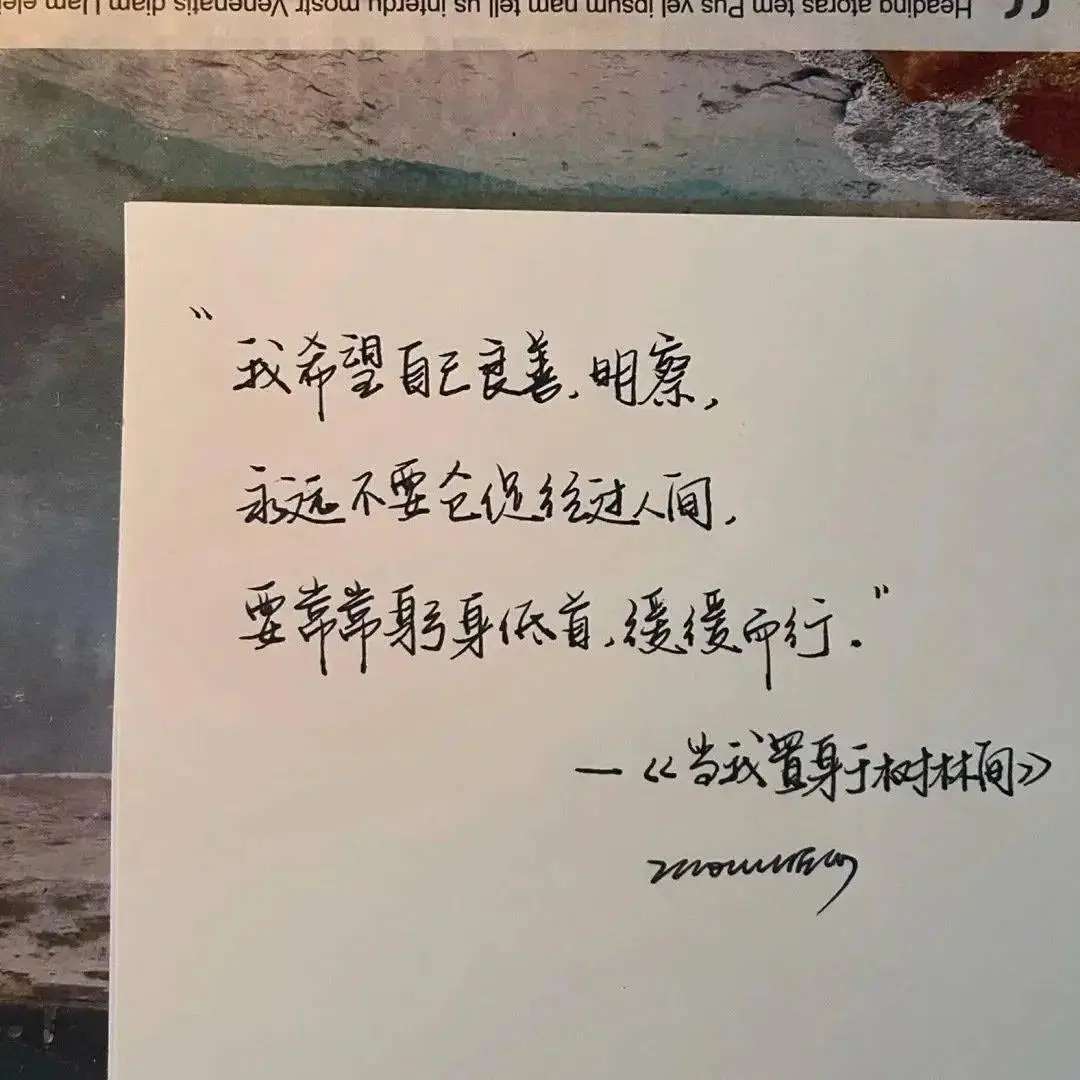 Heading atoras tem Pus vel ipsum nam tell us interdu mostr Venenatis diam Ulam
“我希望自己良善、明察，
永远不要仓促经过人间，
要常常躬身低首，缓缓而行。”
—《当我置身于树林间》